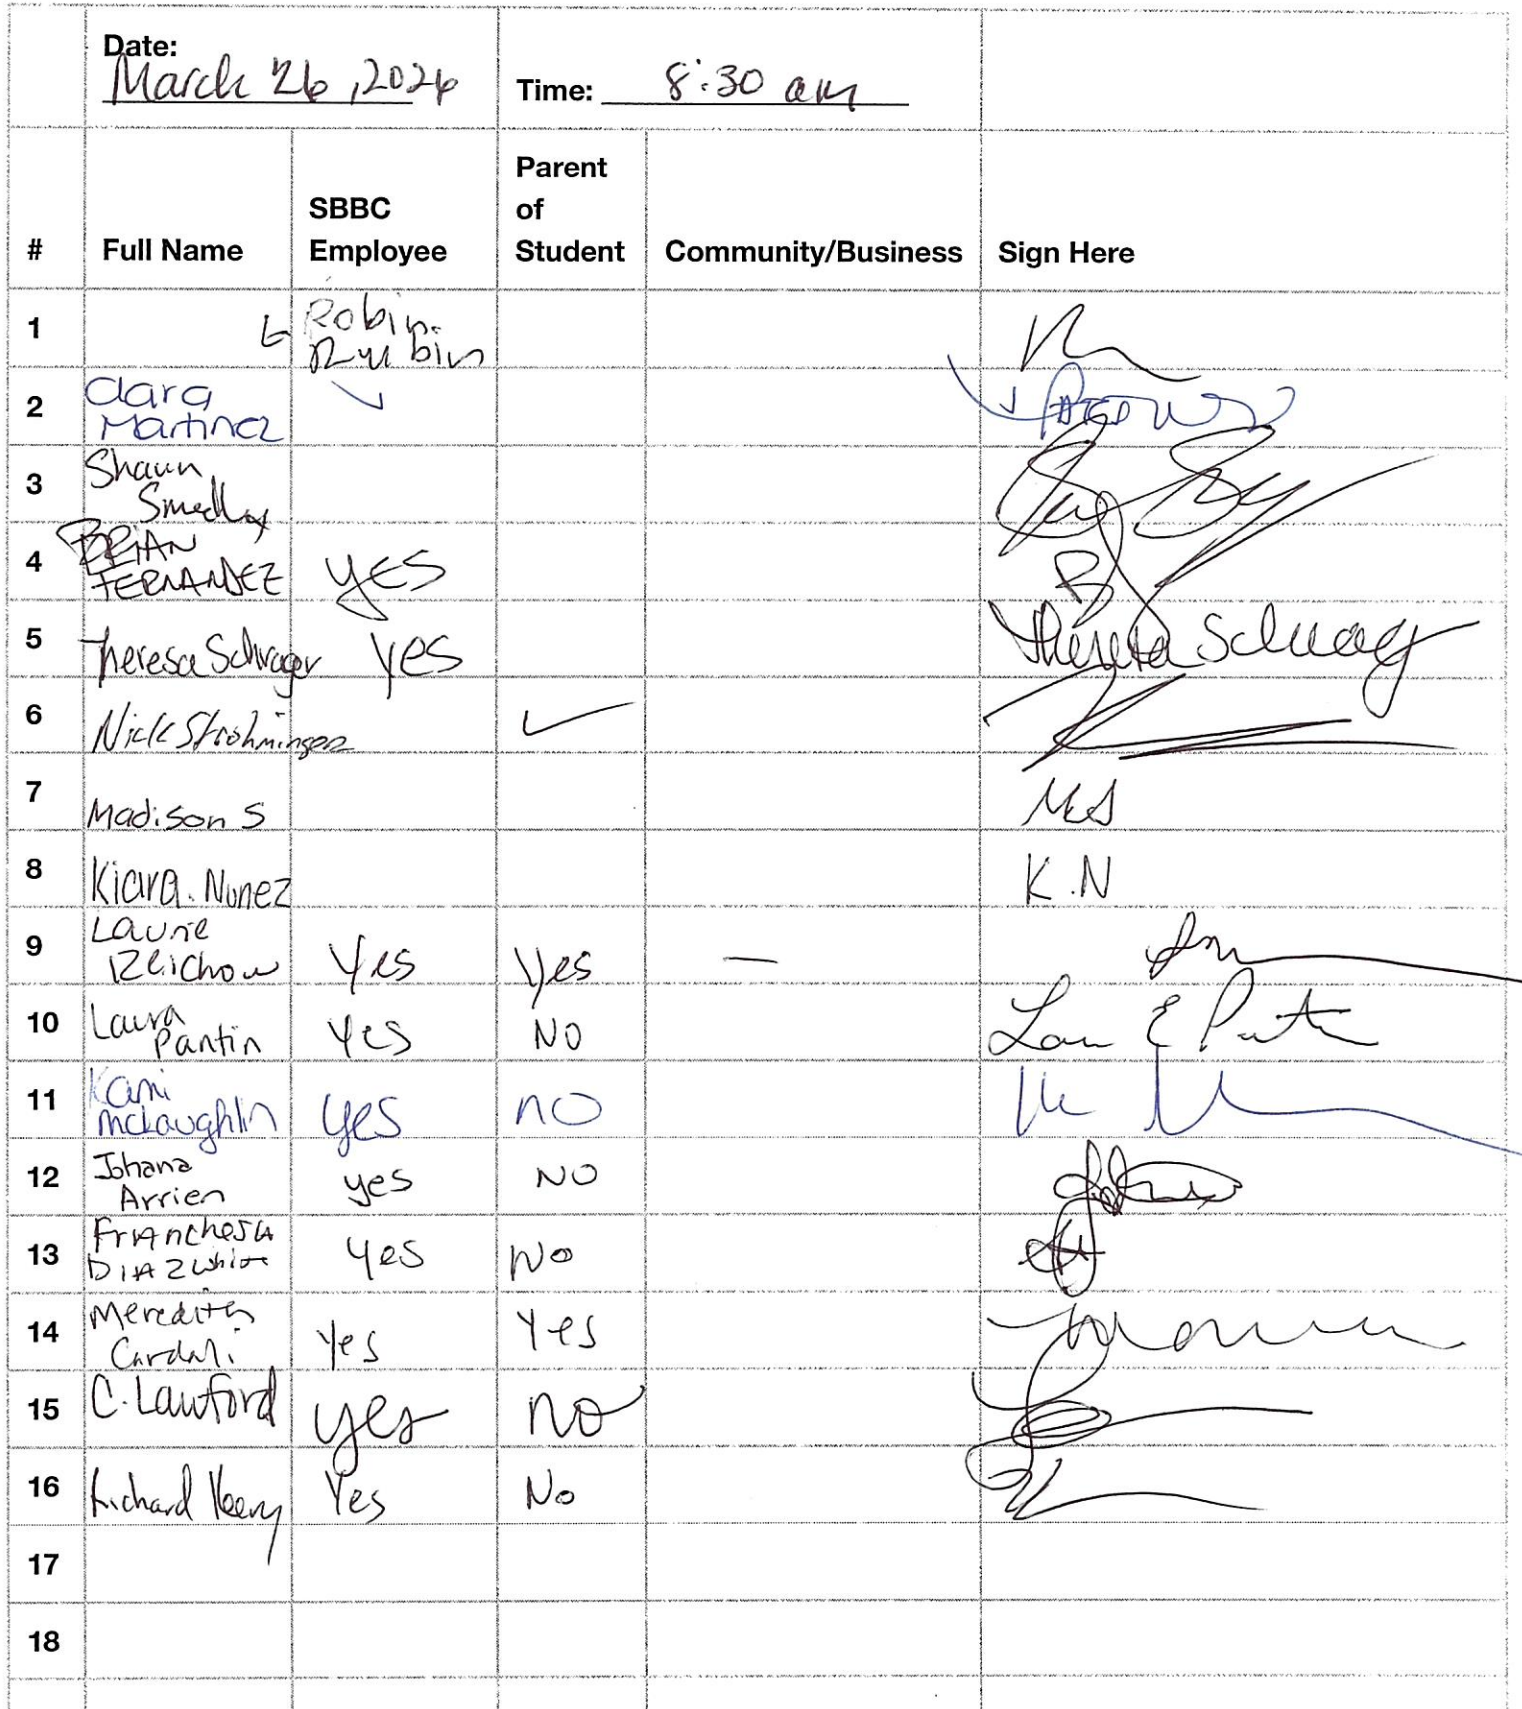 Date:
March 26, 2026
Time: 8:30 am
# Full Name SBBC Employee Parent of Student Community/Business Sign Here
1 Robin Rubin
2 Clara Martinez
3 Shaun
4 BRIAN FERNANDEZ yES
5 Theresa Schrager yES Theresa Schrager
6 Nick Strohminger ✓
7 Madison S MS
8 Kiara. Nunez K.N
9 Laurie Reichow Yes Yes —
10 Laura Pantin Yes NO Laura E Pantin
11 Kami McLaughlin yes no
12 Johana Arrien yes NO
13 FrAnchesLA DIAZ white Yes No
14 Meredith Yes Yes
15 C. Lawford yes no
16 Richard Yes No
17
18